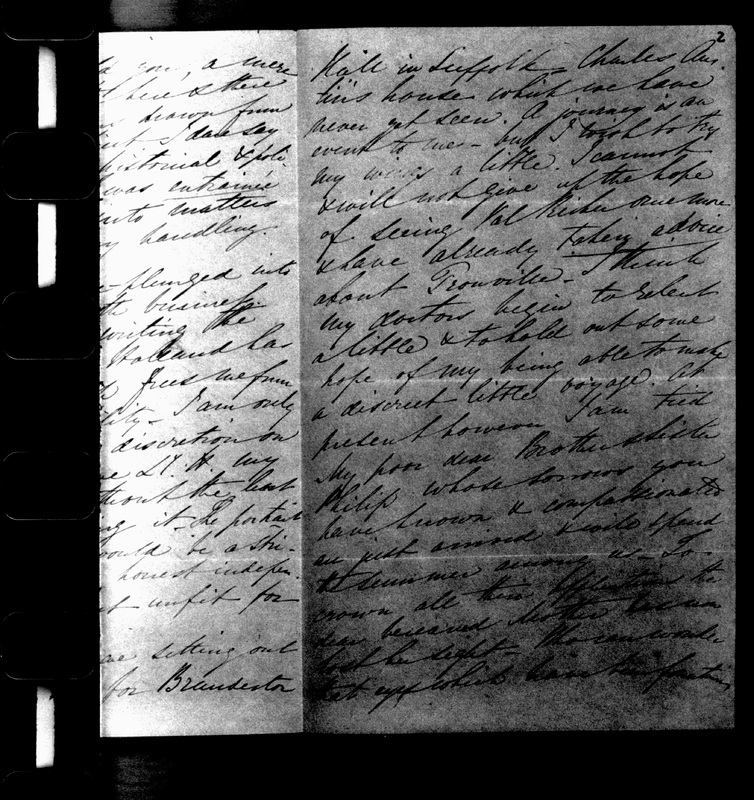 2
you, a mere
here & there
drawn from
I dare say
historical & poli
was entrainée
into matters
handling.
plunged into
business
writing the
and has
frees me from
I am only
discretion on
my
without the least
it. The portrait
would be a stri-
honest indepen-
unfit for
are setting out
for Brandeston
Hall in Suffolk - Charles Aus-
tin's house which we have
never yet seen. A journey is an
event to me - but I wish to try
my wings a little. I cannot
& will not give up the hope
of seeing Val Richer once more
& have already taken advice
about Trouville - I think
my doctors begin to relent
a little & to hold out some
hope of my being able to make
a discreet little voyage. At
present however I am tied
My poor dear Brother & Sister
Philip whose sorrows you
have known & compassionated
are just arrived & will spend
the summer among us - To
crown all their afflictions the
dear bereaved Mother has now
lost her sight - Who can wonder
that eyes which have been